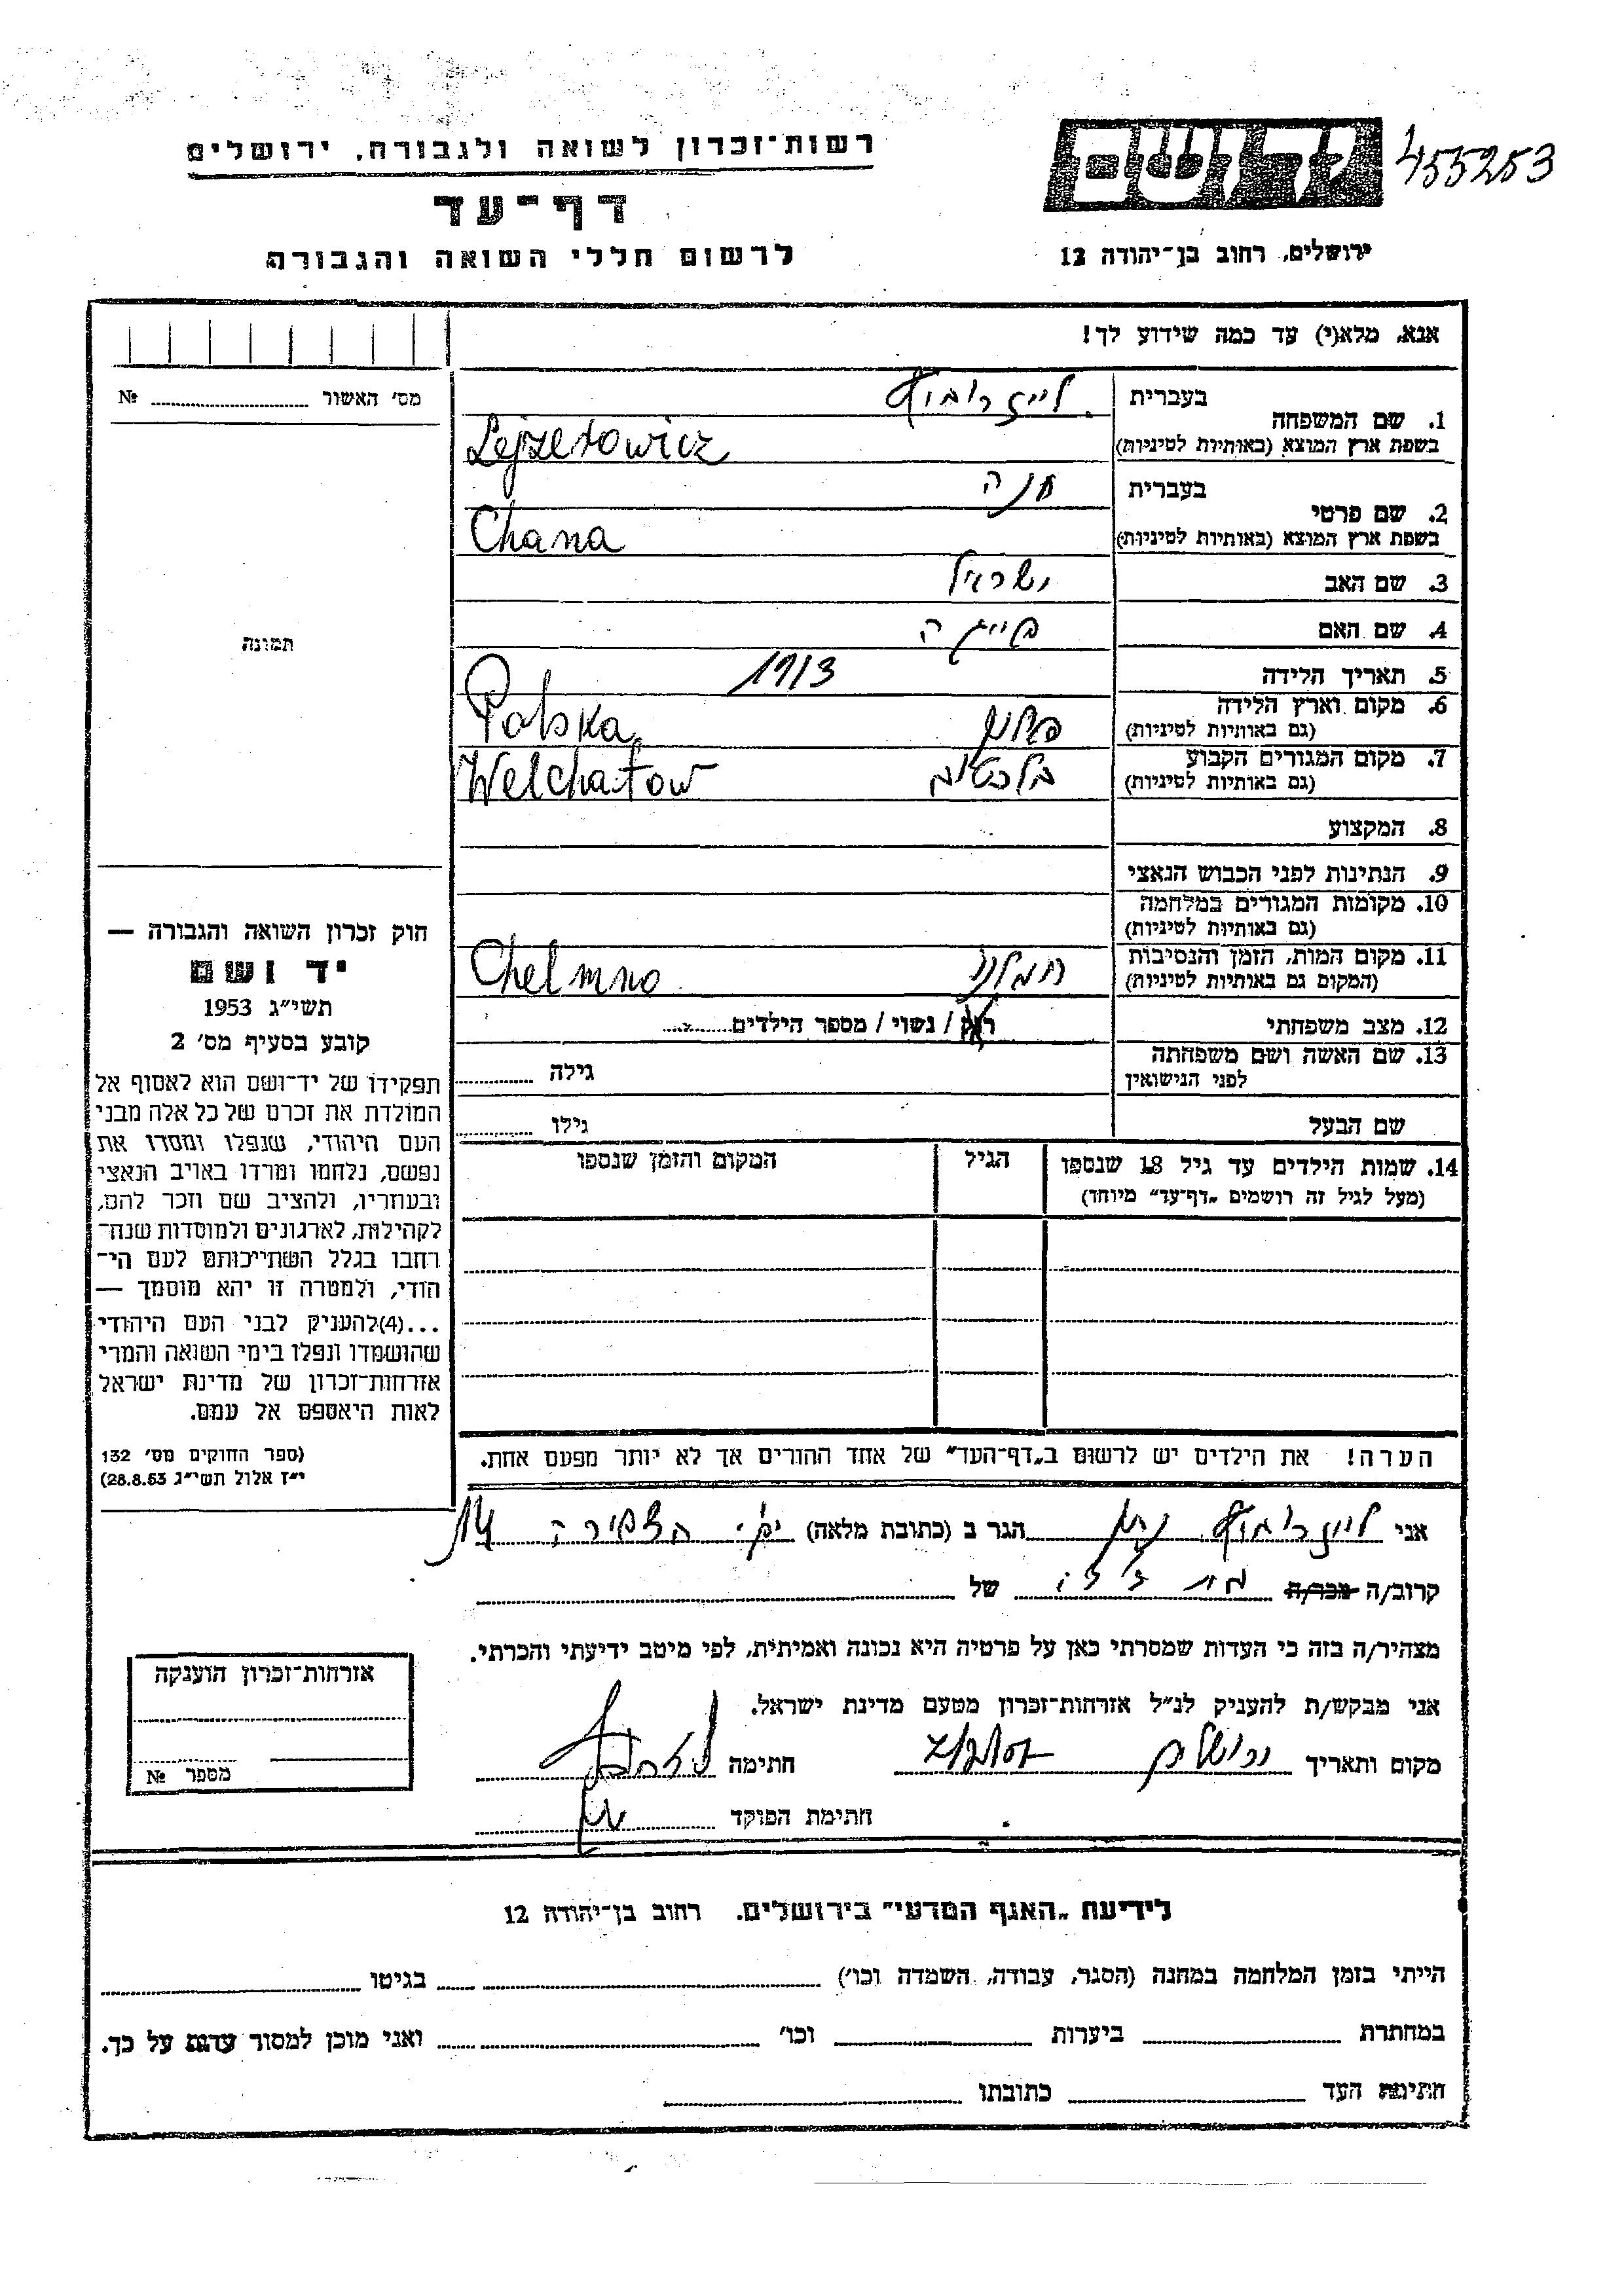 רשות־זכרון לשואה ולגבורה, ירושלים
דף־עד
לרשום חללי השואה והגבורה
יד ושם
455253
ירושלים, רחוב בן־יהודה 12
אנא, מלא(י) עד כמה שידוע לך!
מס' האשור № 
1. שם המשפחה
בעברית
לייזרוביץ
בשפת ארץ המוצא (באותיות לטיניות)
Lejzerowicz
2. שם פרטי
בעברית
חנה
בשפת ארץ המוצא (באותיות לטיניות)
Chana
3. שם האב ישראל
4. שם האם
5. תאריך הלידה 1913
6. מקום וארץ הלידה פולין
(גם באותיות לטיניות) Polska
7. מקום המגורים הקבוע
(גם באותיות לטיניות) Welchatow
8. המקצוע
9. הנתינות לפני הכבוש הנאצי
10. מקומות המגורים במלחמה
(גם באותיות לטיניות)
11. מקום המות, הזמן והנסיבות חמלנו
(המקום גם באותיות לטיניות) Chelmno
12. מצב משפחתי רוק / נשוי / מספר הילדים
13. שם האשה ושם משפחתה
לפני הנישואין גילה
שם הבעל גילו
14. שמות הילדים עד גיל 18 שנספו
(מעל לגיל זה רושמים „דף־עד” מיוחד)
הגיל
המקום והזמן שנספו
הערה! את הילדים יש לרשום ב„דף־העד” של אחד ההורים אך לא יותר מפעם אחת.
תמונה
חוק זכרון השואה והגבורה —
יד ושם
תשי״ג 1953
קובע בסעיף מס' 2
תפקידו של יד־ושם הוא לאסוף אל
המולדת את זכרם של כל אלה מבני
העם היהודי, שנפלו ומסרו את
נפשם, נלחמו ומרדו באויב הנאצי
ובעוזריו, ולהציב שם וזכר להם,
לקהילות, לארגונים ולמוסדות שנח־
רבו בגלל השתייכותם לעם הי־
הודי, ולמטרה זו יהא מוסמך —
...(4)להעניק לבני העם היהודי
שהושמדו ונפלו בימי השואה והמרי
אזרחות־זכרון של מדינת ישראל
לאות היאספם אל עמם.
(ספר החוקים מס' 132
י״ז אלול תשי״ג 28.8.53)
אני לייזרוביץ נתן הגר ב (כתובת מלאה) הצפירה 14
קרוב/ה מכר/ה של
מצהיר/ה בזה כי העדות שמסרתי כאן על פרטיה היא נכונה ואמיתית, לפי מיטב ידיעתי והכרתי.
אני מבקש/ת להעניק לנ״ל אזרחות־זכרון מטעם מדינת ישראל.
מקום ותאריך ירושלים חתימה
חתימת הפוקד
אזרחות־זכרון הוענקה
מספר №
לידיעת „האגף המדעי” בירושלים, רחוב בן־יהודה 12
הייתי בזמן המלחמה במחנה (הסגר, עבודה, השמדה וכו') בגיטו
במחתרת ביערות וכו' ואני מוכן למסור עדות על כך.
חתימת העד כתובתו